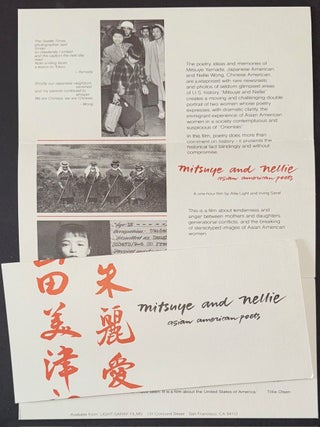 The Seattle Times
photographer said
Smile
so obediently I smiled
and the caption the next day
read
a lesson to Tokyo.
Yamada
Shortly our Japanese neighbors
vanished
and my parents continued to
whisper
We are Chinese, we are Chinese.
Wong
The poetry, ideas and memories of
Mitsuye Yamada, Japanese American
and Nellie Wong, Chinese American
are juxtaposed with rare newsreels
and photos of seldom glimpsed areas
of U.S. history. Mitsuye and Nellie
creates a moving and challenging double
portrait of two women whose poetry
expresses, with dramatic clarity, the
immigrant experience of Asian American
women in a society contemptuous and
suspicious of "Orientals".
In this film, poetry does more than
comment on history - it presents the
historical fact bindingly and without
compromise.
mitsuye and nellie
asian american poets
A one hour film by Allie Light and Irving Saraf
This is a film about tenderness and
anger between mothers and daughters,
generational conflicts, and the breaking
of stereotyped images of Asian American
women.
田美津
朱麗愛
mitsuye and nellie
asian american poets
and seen. It is a film about the United States of America. Tillie Olsen
Available from: LIGHT-SARAF FILMS 131 Concord Street San Francisco, CA 94112